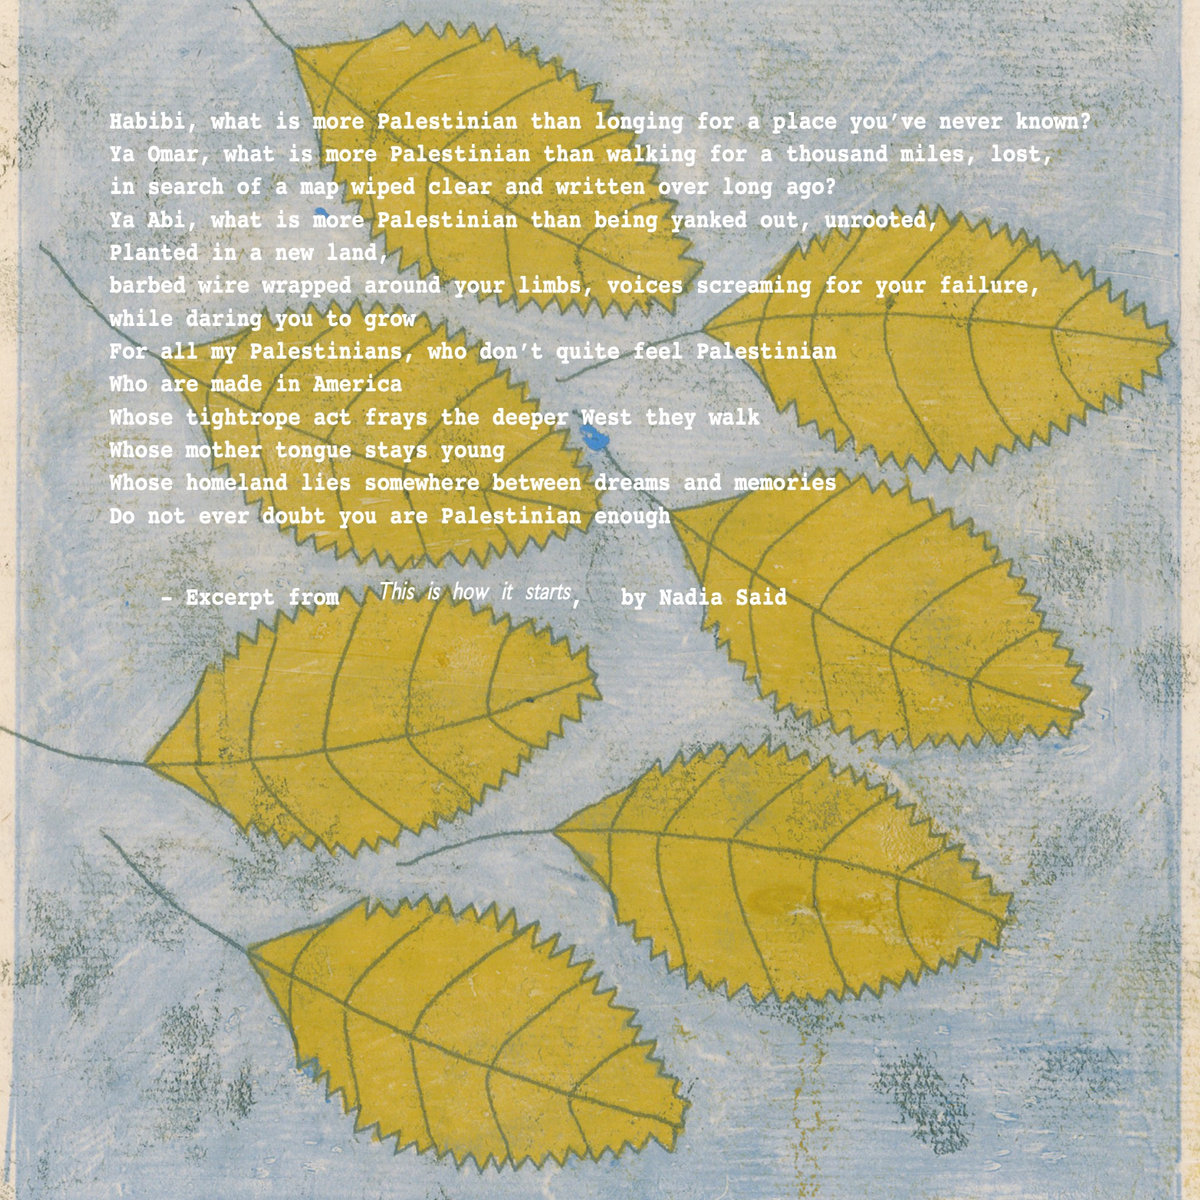 Habibi, what is more Palestinian than longing for a place you’ve never known?
Ya Omar, what is more Palestinian than walking for a thousand miles, lost,
in search of a map wiped clear and written over long ago?
Ya Abi, what is more Palestinian than being yanked out, unrooted,
Planted in a new land,
barbed wire wrapped around your limbs, voices screaming for your failure,
while daring you to grow
For all my Palestinians, who don’t quite feel Palestinian
Who are made in America
Whose tightrope act frays the deeper West they walk
Whose mother tongue stays young
Whose homeland lies somewhere between dreams and memories
Do not ever doubt you are Palestinian enough
– Excerpt from This is how it starts, by Nadia Said